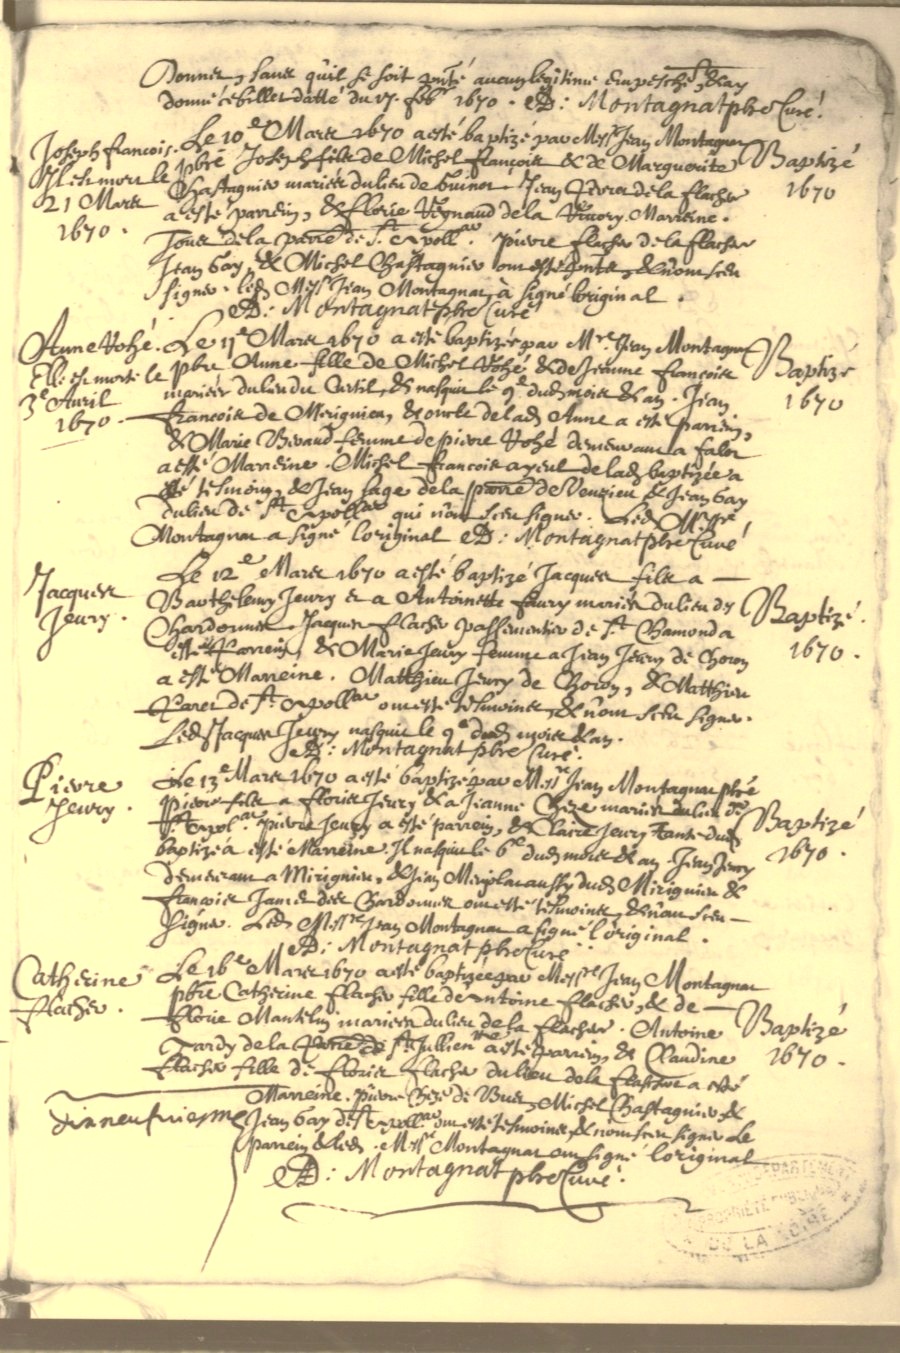 Donner, sauf qu'il se soit pnté aucun legitime empesche, & ay
donné ce billet datté du 17. feb 1670. ED: Montagnat pbre Curé!
Joseph francois.
Il est mort le
21 Mars
1670.
Le 10e Mars 1670 a esté baptizé par Messr Jean Montagnat
pbre Joseph fils de Michel françois & de Marguerite
Chastagnier mariés du lieu de Jean de la flacher
a esté parrein, & florie Regnaud de la Marreine.
Tous de la parre de St Apollre. pierre flacher de la flacher
Jean Gay, & Michel Chastagnier ont esté pnts, & n'ont sceu
signer. led Messr Jean Montagnat à signé l'original.
ED: Montagnat pbre Curé
Baptizé
1670
Anne Rohé.
Elle est morte le
3e Avril
1670.
Le 11e Mars 1670 a esté baptizée par Mre Jean Montagnat
pbre Anne fille de Michel Rohé & de Jeanne françois
mariés du lieu du Cretil, & nasquit le 9e dud mois & an. Jean
francois de Merignieu, & oncle de lad Anne a esté parrein,
& Marie Beraud femme de pierre Rohé demeurant a
a esté Marreine. Michel francois ayeul de lad baptizée a
esté tesmoin, & Jean sage de la parre de & Jean Gay
du lieu de St Apollre qui n'ont sceu signer. Led Messre
Montagnat a signé l'original ED: Montagnat pbre Curé
Baptizé
1670
Jacques
Jeury.
Le 12e Mars 1670 a esté baptizé Jacques fils a
Barthelemy Jeury & a Antoinette faury mariés du lieu des
Chardonnes. Jacques flacher passementier de St Chamond a
esté Parrein, & Marie Jeury femme a Jean Jeury de Choron
a esté Marreine. Matthieu Jeury de Choron, & Matthieu
de St Apollre ont esté tesmoins, & n'ont sceu signer.
Led Jacques Jeury nasquit le 9e dud mois & an.
ED: Montagnat pbre Curé.
Baptizé.
1670.
Pierre
Jeury.
Le 13e Mars 1670 a esté baptizé par Messre Jean Montagnat pbre
pierre fils a florie Jeury & a Jeanne Cheze mariés du lieu de
St Apolre. pierre Jeury a esté parrein, & Claire Jeury tante dud
baptizé a esté Marreine. Il nasquit le 6e dud mois & an. Jean Jeury
demeurant a Mirignieu, & Jean aussy dud Mirignieu &
francois Jamet des Chardonnes ont esté tesmoins, & n'ont sceu
signer. Led Messre Jean Montagnat a signé l'original.
ED: Montagnat pbre Curé
Baptizé
1670.
Catherine
flacher.
Le 16e Mars 1670 a esté baptizée par Messre Jean Montagnat
pbre Catherine flacher fille de Antoine flacher, & de
florie Mantelin mariés du lieu de la flacher. Antoine
Tardy de la Parre de St Jullien a esté parrein, & Claudine
flacher fille de florie flacher du lieu de la flachere a esté
Marreine. pierre Cheze de Michel Chastagnier, &
Jean Gay de St Apollre ont esté tesmoins, & n'ont sceu signer Le
parrein & led. Messre Montagnat ont signé l'original
ED: Montagnat pbre Curé.
Baptizé
1670.
dixneufviesme
DEPARTEMENT
PROPRIÉTÉ PUBLIQUE
DE LA LOIRE